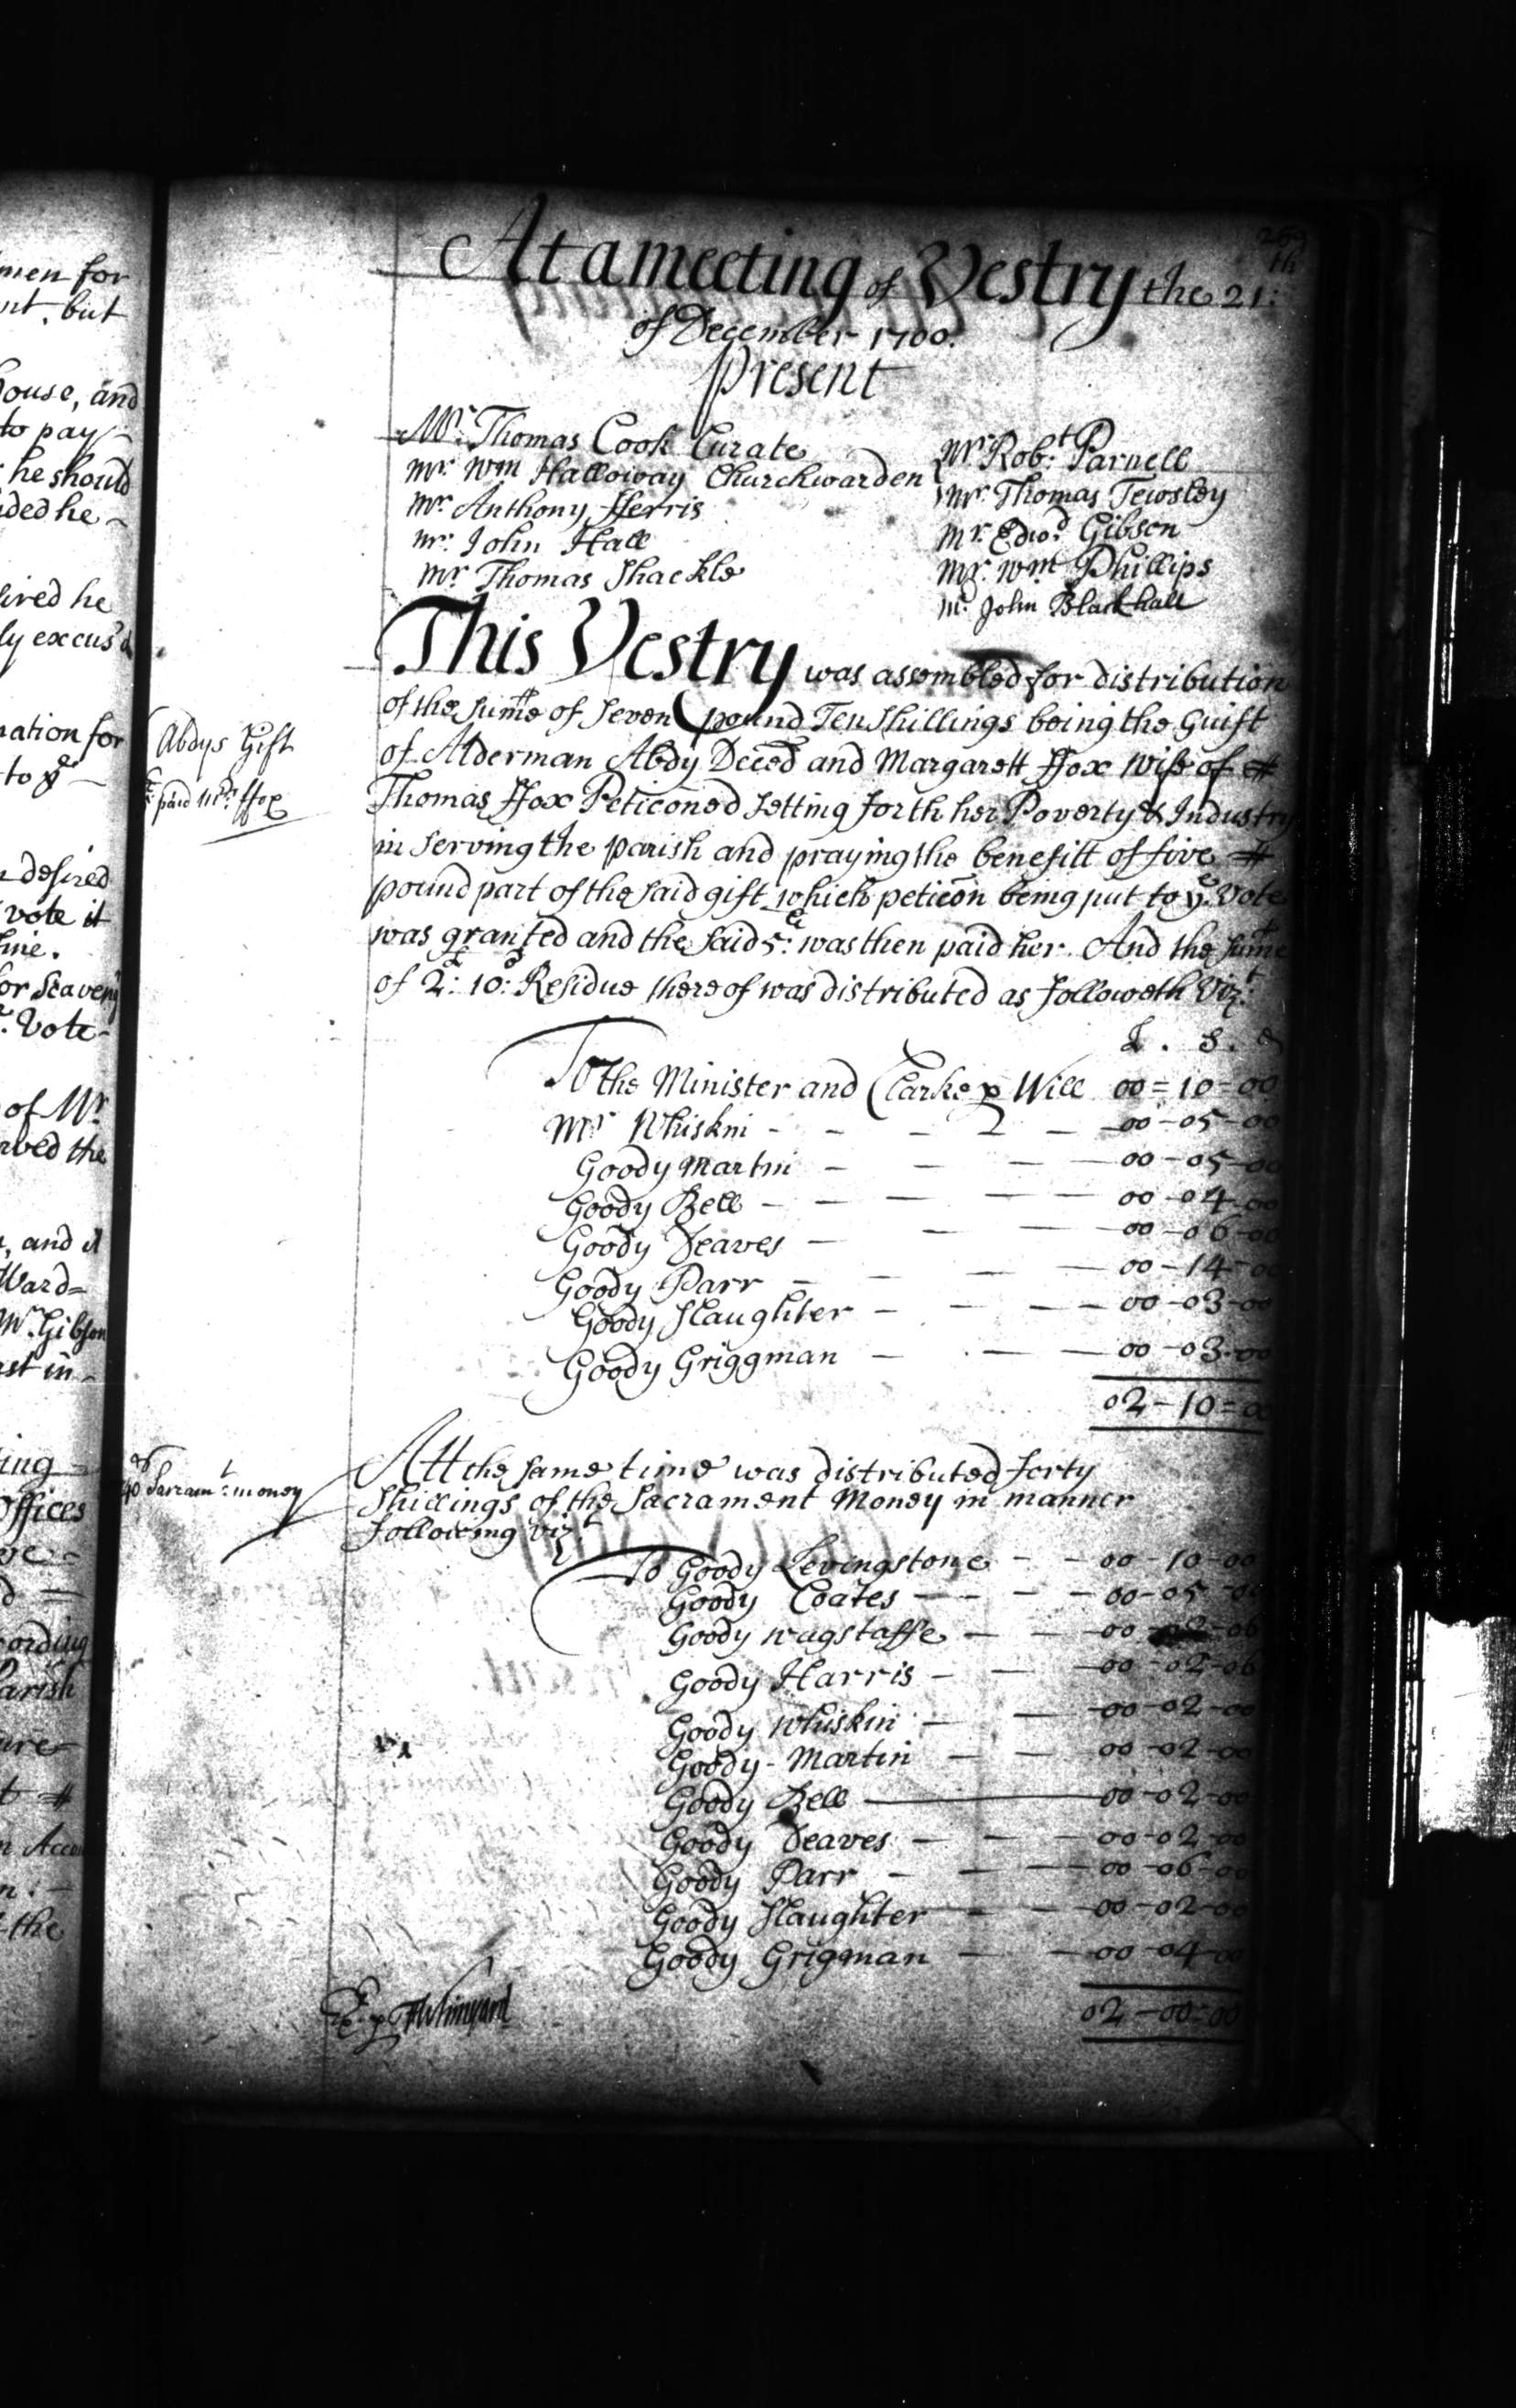 269
At a meeting of Vestry the 21th
of December 1700.
Present
Mr. Thomas Cook Curate
Mr. Wm Halloway Churchwarden
Mr. Anthony Fferris
Mr. John Hall
Mr. Thomas Shackle
Mr. Robt. Parnell
Mr. Thomas Tewsley
Mr. Edwd. Gibson
Mr. Wm Phillips
Mr. John Blackhall
This Vestry was assembled for distribution
of the sume of seven pound Ten shillings being the Guift
of Alderman Abdy Deced and Margarett Ffox wife of
Thomas Ffox Peticoned setting forth her Poverty & Industry
in serving the parish and praying the benefitt of five
pound part of the said gift which peticon being put to ye. Vote
was granted and the said 5l: was then paid her. And the sume
of 2l: 10s: Residue thereof was distributed as followeth Vizt.
Abdys Gift
paid Mrs. Ffox
L. s. d
To the Minister and Clarke p Will 00=10=00
Mrs Whiskin - - - - - 00-05-00
Goody Martin - - - 00-05-00
Goody Bell - - - - 00-04-00
Goody Deaves - - - 00-06-00
Goody Parr - - - - 00-14-00
Goody Slaughter - - - - 00-03-00
Goody Griggman - - - 00-03-00
02-10=00
40s Sacramt. money
Att the same time was distributed forty
shillings of the Sacrament Money in manner
following vizt.
To Goody Levingstone - - 00-10-00
Goody Coates - - - - 00-05-00
Goody Wagstaffe - - - 00-02-06
Goody Harris - - - 00-02-06
Goody Whiskin - - 00-02-00
Goody Martin - - 00-02-00
Goody Bell - 00-02-00
Goody Deaves - - - 00-02-00
Goody Parr - - - 00-06-00
Goody Slaughter - - 00-02-00
Goody Grigman - - 00-04-00
02-00=00
men for
but
house, and
to pay
he should
ded he
ired he
ly excus'd
nation for
to ye
desired
vote it
for Scaveng
Vote
of Mr
rved the
, and it
Ward=
Mr. Gibson
st in
ing
Offices
ording
arish
the